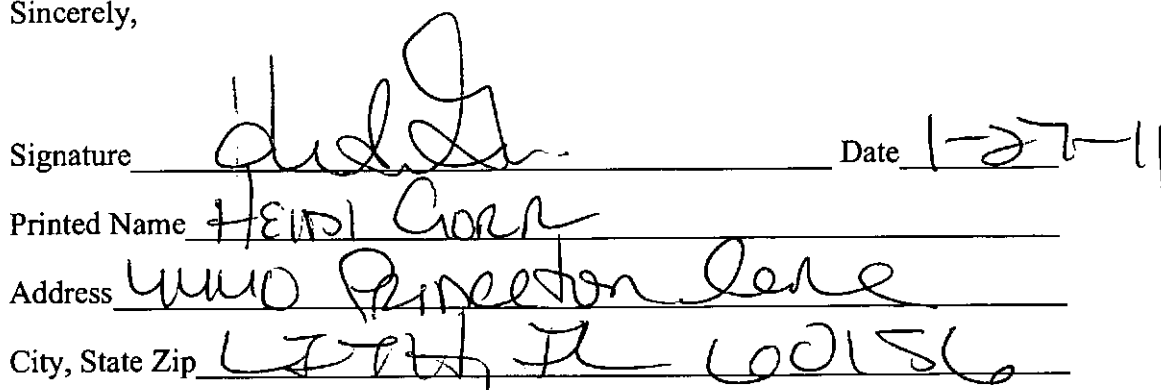 Sincerely,
Signature Date 1-27-11
Printed Name HEIDI GORR
Address 4440 Princeton Lane
City, State Zip LITH, IL 60156